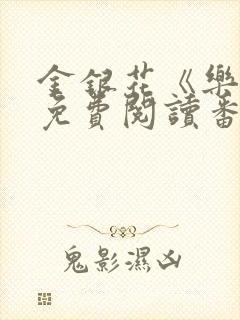 金銀花《樂
免費閱讀番
鬼影濕凶